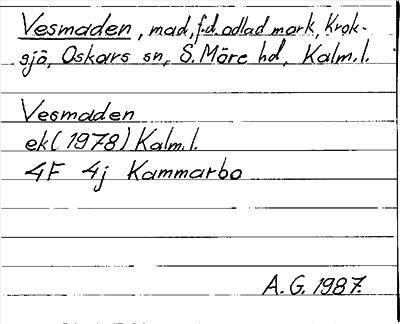 Vesmaden, mad, f.d. odlad mark, Krok-
sjö, Oskars sn, S. Möre hd, Kalm.l.
Vesmaden
ek (1978) Kalm.l.
4F 4j Kammarbo
A.G. 1987.